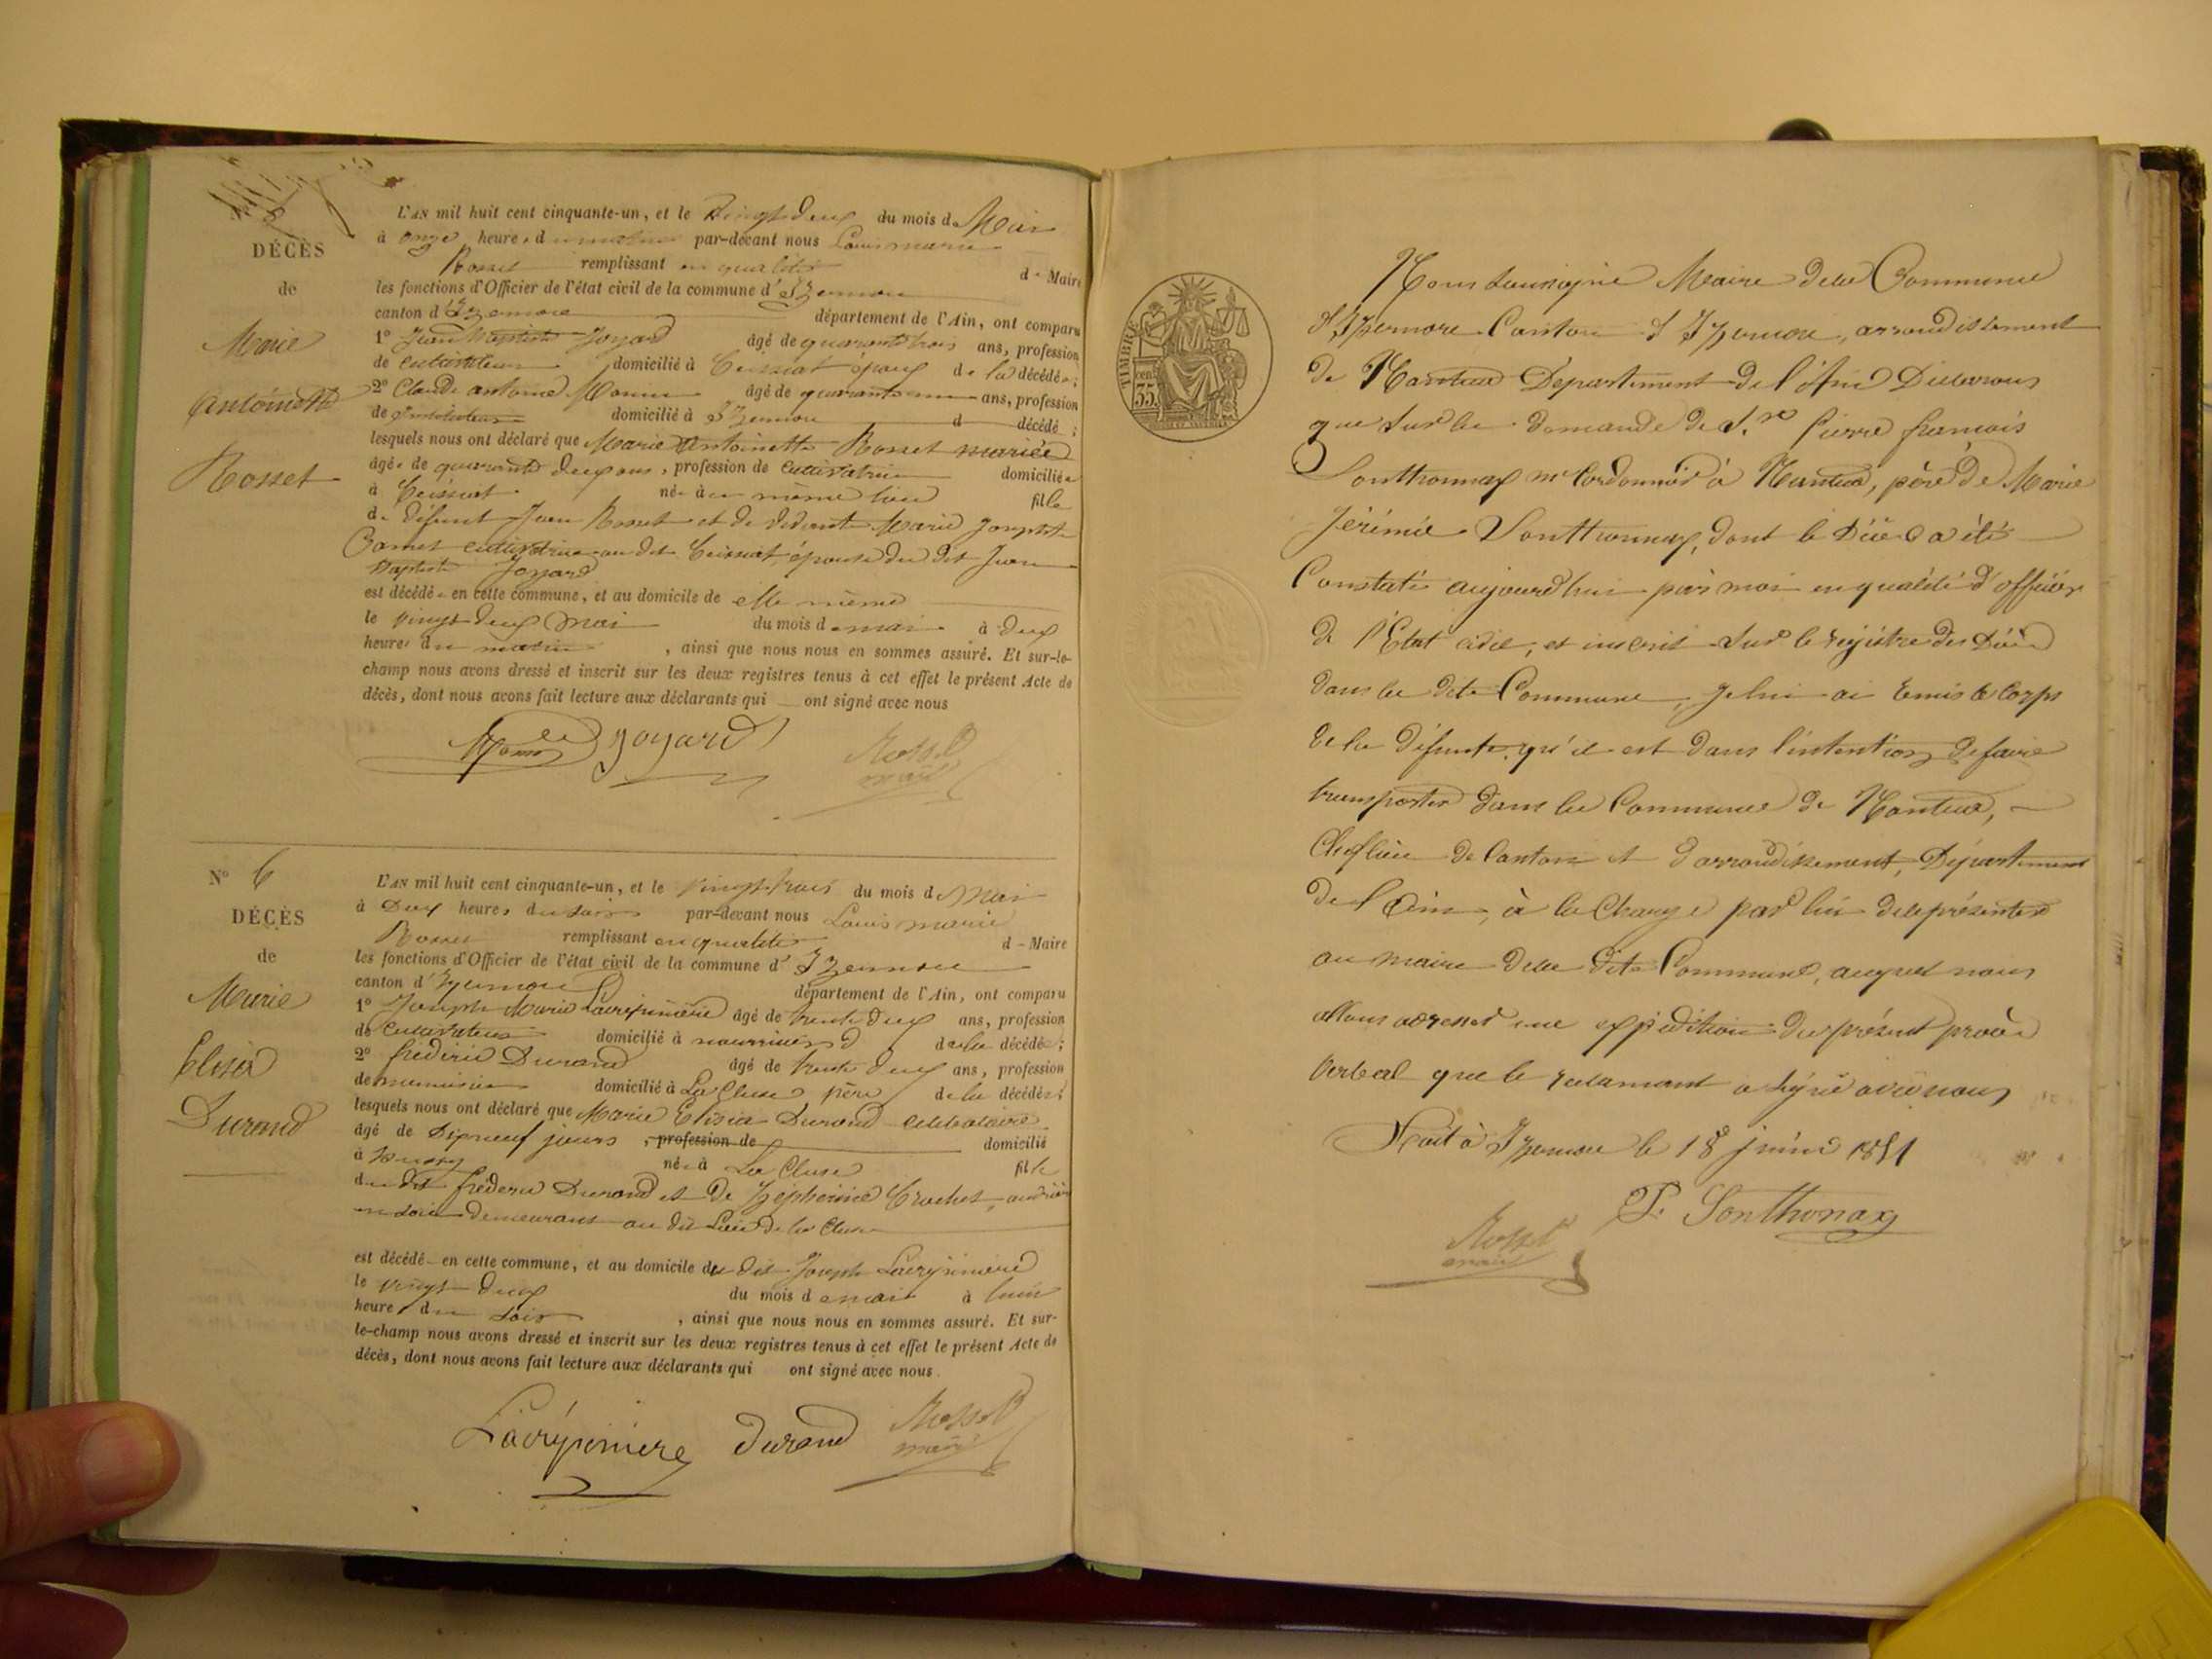 DÉCÈS
de
Marie
Antoinette
Rosset
L'AN mil huit cent cinquante-un, et le vingt deux du mois de Mai
à onze heures du matin par-devant nous Louis marie
Rosset remplissant en qualité de Maire
les fonctions d'Officier de l'état civil de la commune d'Izernore
canton d'Izernore département de l'Ain, ont comparu
1° Jean Baptiste Joyard âgé de quarante trois ans, profession
de cultivateur domicilié à Ceissiat époux de la décédée;
2° Claude antoine Monin âgé de quarante ans, profession
de instituteur domicilié à Izernore d décédé ;
lesquels nous ont déclaré que Marie Antoinette Rosset mariée
âgée de quarante deux ans, profession de cultivatrice domiciliée
à Ceissiat née au même lieu fille
de défunt Jean Rosset et de vivante Marie Josephte
cultivatrice au dit Ceissiat, épouse du dit Jean
Baptiste Joyard
est décédée en cette commune, et au domicile de elle même
le vingt deux mai du mois de mai à deux
heures du matin, ainsi que nous nous en sommes assuré. Et sur-le-
champ nous avons dressé et inscrit sur les deux registres tenus à cet effet le présent Acte de
décès, dont nous avons fait lecture aux déclarants qui ont signé avec nous
Monin Joyard Rosset
maire
N° 6
DÉCÈS
de
Marie
Elisia
Durand
L'AN mil huit cent cinquante-un, et le vingt trois du mois de Mai
à Deux heures du soir par-devant nous Louis marie
Rosset remplissant en qualité de Maire
les fonctions d'Officier de l'état civil de la commune d'Izernore
canton d'Izernore département de l'Ain, ont comparu
1° Joseph Marie Lacrépinière âgé de trente deux ans, profession
de cultivateur domicilié à de la décédée;
2° frédéric Durand âgé de trente deux ans, profession
de menuisier domicilié à La Cluse père de la décédée;
lesquels nous ont déclaré que Marie Elisia Durand célibataire
âgé de Dix neuf jours, profession de domicilié
à née à La Cluse fille
du dit fréderic Durand et de Zéphérine Crochet,
demeurant au dit Lieu de la Cluse
est décédé en cette commune, et au domicile du dit Joseph Lacrépinière
le vingt deux du mois de mai à huit
heures du soir, ainsi que nous nous en sommes assuré. Et sur-
le-champ nous avons dressé et inscrit sur les deux registres tenus à cet effet le présent Acte de
décès, dont nous avons fait lecture aux déclarants qui ont signé avec nous.
Lacrépinière Durand Rosset
maire
TIMBRE
35 cent
Nous soussigné Maire de la Commune
d'Izernore Canton d'Izernore, arrondissement
de Nantua Département de l'Ain Déclarons
que sur la demande de S.r Pierre francois
Sonthonnax m.e Cordonnier à Nantua, père de Marie
Jérémie Sonthonnax, dont le Décès a été
Constaté aujourd'hui par moi en qualité d'officier
de l'Etat civil, et inscrit sur le registre des Décès
dans la dite Commune, je lui ai remis le Corps
de la défunte qu'il est dans l'intention de faire
transporter dans la Commune de Nantua,
Cheflieu de Canton et d'arrondissement, Département
de l'Ain, à la Charge par lui de le présenter
au maire de la dite Commune, auquel nous
allons adresser une expédition du présent procès
verbal que le réclamant a signé avec nous
Fait à Izernore le 18 juin 1851
P. Sonthonax
Rosset
maire